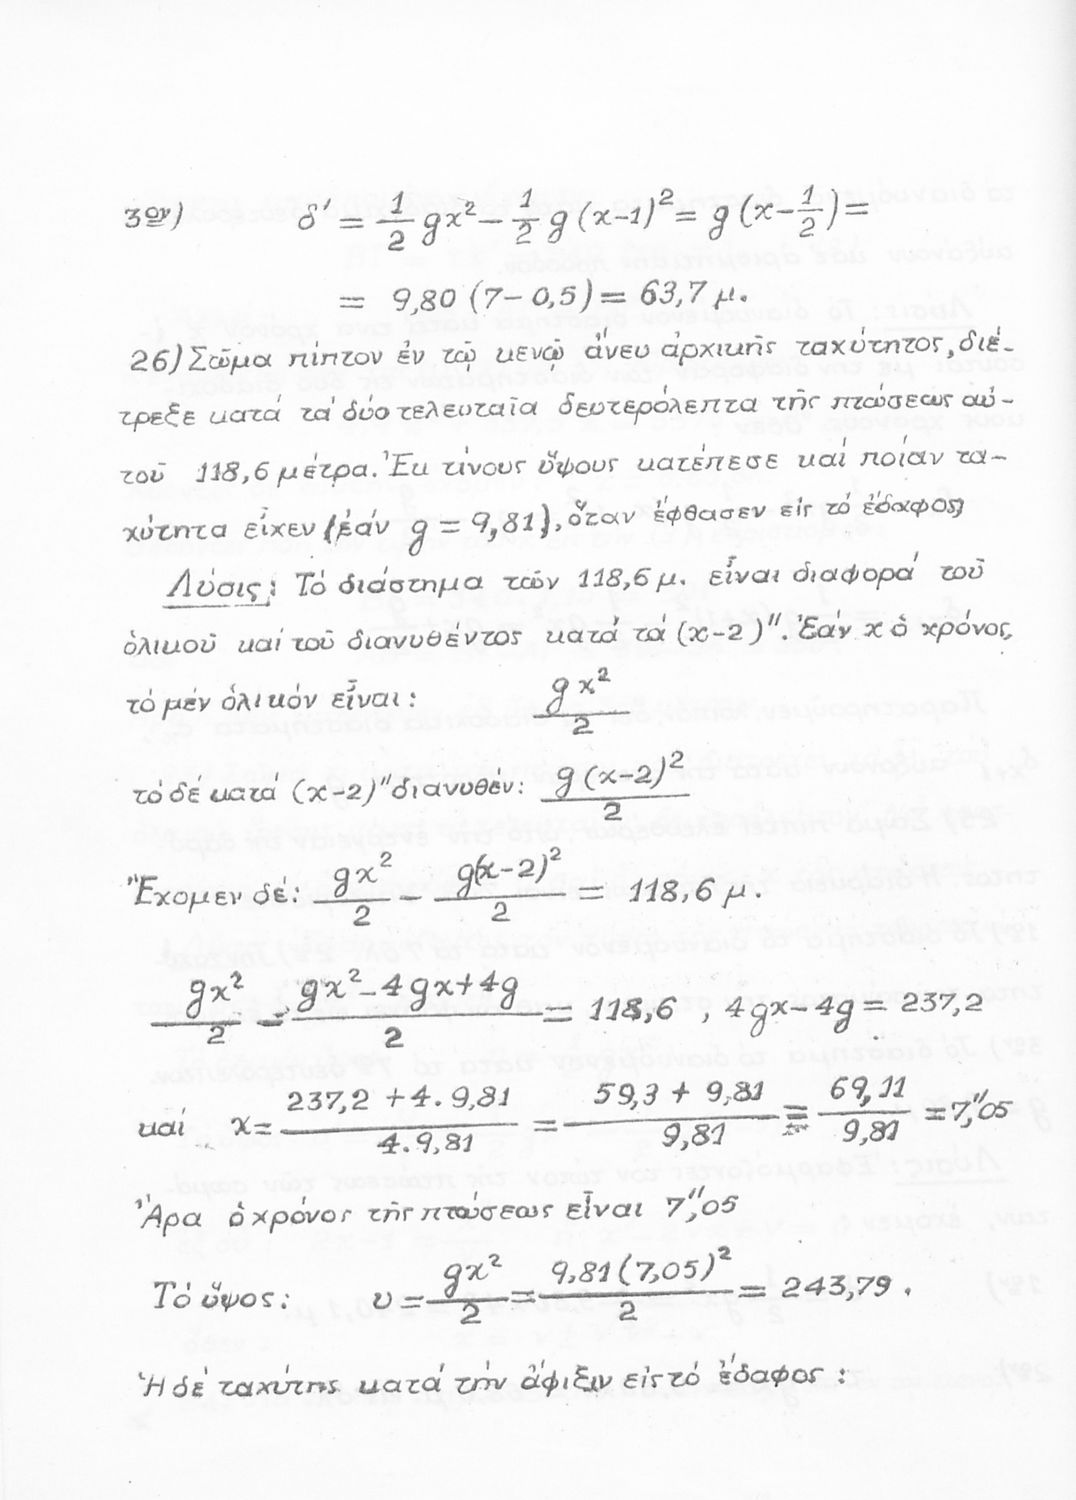 3ον) δ' = 1/2 gx² - 1/2 g (x-1)² = g (x - 1/2) =
= 9,80 (7 - 0,5) = 63,7 μ.
26) Σῶμα πίπτον ἐν τῷ κενῷ ἄνευ ἀρχικῆς ταχύτητος, διέ-
τρεξε κατά τά δύο τελευταῖα δευτερόλεπτα τῆς πτώσεως αὐ-
τοῦ 118,6 μέτρα. Ἐκ τίνους ὕψους κατέπεσε καί ποίαν τα-
χύτητα εἶχεν (ἐάν g = 9,81), ὅταν ἔφθασεν εἰς τό ἔδαφος;
Λύσις: Τό διάστημα τῶν 118,6 μ. εἶναι διαφορά τοῦ
ὁλικοῦ καί τοῦ διανυθέντος κατά τά (x-2)". Ἐάν x ὁ χρόνος,
τό μέν ὁλικόν εἶναι: gx²/2
τό δέ κατά (x-2)" διανυθέν: g(x-2)²/2
Ἔχομεν δέ: gx²/2 - g(x-2)²/2 = 118,6 μ.
gx²/2 - gx²-4gx+4g/2 = 118,6 , 4gx-4g = 237,2
καί x = 237,2 + 4.9,81/4.9,81 = 59,3 + 9,81/9,81 = 69,11/9,81 = 7",05
Ἄρα ὁ χρόνος τῆς πτώσεως εἶναι 7",05
Τό ὕψος: υ = gx²/2 = 9,81(7,05)²/2 = 243,79 .
Ἡ δέ ταχύτης κατά τήν ἄφιξιν εἰς τό ἔδαφος :